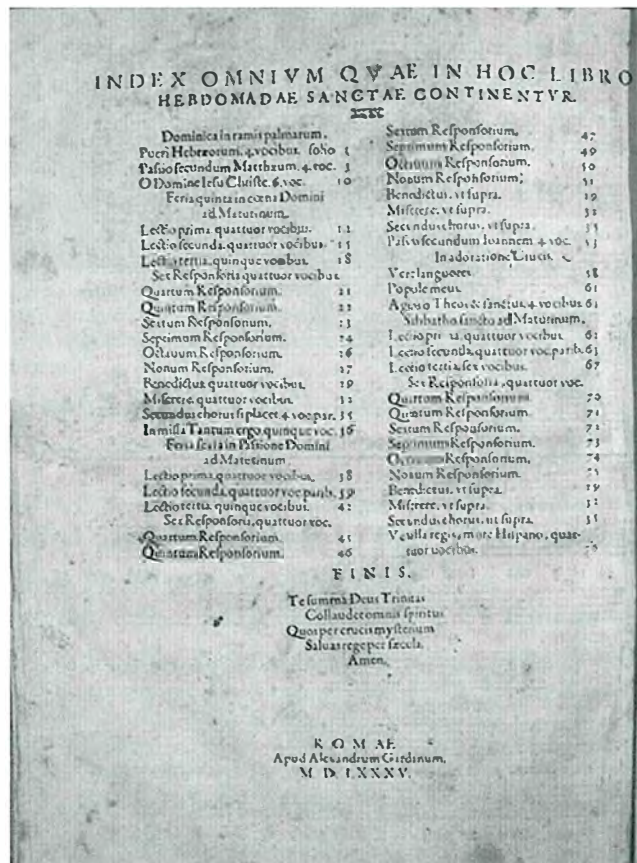 INDEX OMNIVM QVAE IN HOC LIBRO
HEBDOMADAE SANCTAE CONTINENTVR
Dominica in ramis palmarum.
Pueri Hebræorum. 4. vocibus. folio 1
Passio secundum Matthæum. 4. voc. 3
O Domine Iesu Christe. 6. voc. 10
Feria quinta in cœna Domini
ad Matutinum.
Lectio prima quattuor vocibus. 12
Lectio secunda. quattuor vocibus. 15
Lectio tertia. quinque vocibus. 18
Sex Responsoria quattuor vocibus
Quartum Responsorium. 21
Quintum Responsorium. 22
Sextum Responsorium. 23
Septimum Responsorium. 24
Octauum Responsorium. 26
Nonum Responsorium. 27
Benedictus quattuor vocibus. 29
Miserere. quattuor vocibus. 32
Secundus chorus si placet. 4. voc. par. 35
In missa Tantum ergo. quinque voc. 36
Feria sexta in Passione Domini
ad Matutinum
Lectio prima. quattuor vocibus. 38
Lectio secunda. quattuor voc. parib. 39
Lectio tertia quinque vocibus. 42
Sex Responsoria. quattuor voc.
Quartum Responsorium. 45
Quintum Responsorium. 46
Sextum Responsorium. 47
Septimum Responsorium. 49
Octauum Responsorium. 50
Nonum Responsorium. 51
Benedictus. vt supra. 29
Miserere. vt supra. 32
Secundus chorus. vt supra. 35
Passio secundum Ioannem 4. voc. 53
In adoratione Crucis.
Vere languores. 58
Popule meus. 61
Agios o Theos & sanctus. 4. vocibus 61
Sabbatho sancto ad Matutinum.
Lectio prima. quattuor vocibus. 62
Lectio secunda. quattuor voc. parib. 63
Lectio tertia. sex vocibus. 67
Sex Responsoria. quattuor voc.
Quartum Responsorium 70
Quintum Responsorium. 71
Sextum Responsorium. 72
Septimum Responsorium. 73
Octauum Responsorium. 74
Nonum Responsorium. 75
Benedictus. vt supra. 29
Miserere. vt supra. 32
Secundus chorus. ut supra. 35
Vexilla regis, more Hispano, quat-
tuor uocibus.
FINIS.
Te summa Deus Trinitas
Collaudet omnis spiritus
Quos per crucis mysterium
Saluas rege per sæcula.
Amen.
ROMAE
Apud Alexandrum Gardanum.
M D. LXXXV.